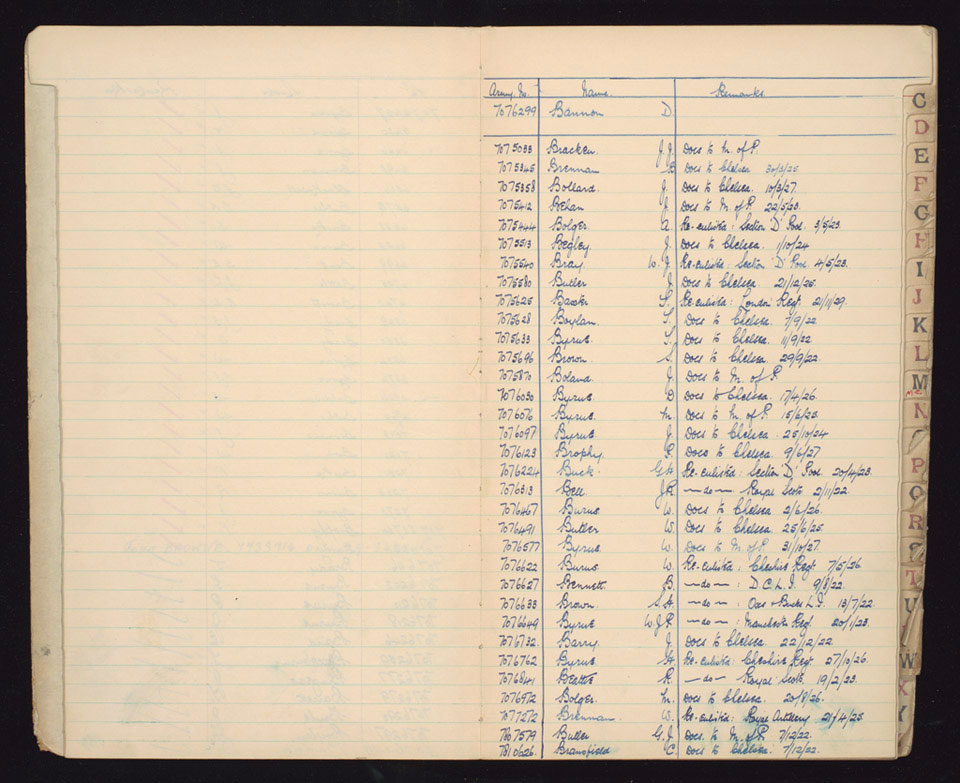 Army No. Name Remarks
7076299 Bannon D.
7075033 Bracken. J.J. Docs to M. of P.
7075345 Brennan B Docs to Chelsea 30/3/25.
7075358 Bollard. J. Docs to Chelsea. 10/3/27.
7075412 Behan J. Docs to M. of P. 22/5/23.
7075444 Bolger. A. Re-enlisted: Section 'D' Pool. 3/5/23.
7075513 Begley. J. Docs to Chelsea. 1/10/24
7075540 Bray. W.J. Re-enlisted: Section 'D' Pool. 4/5/23.
7075580 Butler J. Docs to Chelsea. 21/12/25.
7075625 Re-enlisted: London Regt. 21/11/29.
7075628 Boylan. Docs to Chelsea. 7/9/22
7075633 Byrne. Docs to Chelsea. 11/9/22
7075696 Brown. S. Docs to Chelsea. 29/9/22.
7075870 Boland. J. Docs to M. of P.
7076030 Byrne. D Docs to Chelsea. 17/4/26.
7076076 Byrne. M. Docs to M. of P. 15/6/23.
7076097 Byrne. J. Docs to Chelsea. 25/10/24
7076123 Brophy. P. Docs to Chelsea. 9/6/27
7076224 Buck. Re-enlisted: Section 'D' Pool. 20/4/23.
7076313 Bell. J.R. —do— Royal Scots 2/11/22.
7076467 Burns W. Docs to Chelsea. 2/6/26.
7076491 Butler W. Docs to Chelsea. 25/6/25
7076577 Byrne. W. Docs to M. of P. 31/10/27.
7076622 Burns W. Re-enlisted: Cheshire Regt. 7/5/26.
7076627 Bennett. B. —do— : D.C.L.I. 9/8/22.
7076633 Brown. S.A. —do— : Oxs & Bucks L.I. 13/7/22
7076649 Byrne W.J.P. —do— : Manchester Regt 20/1/23.
7076732. Barry. J. Docs to Chelsea. 22/12/22
7076762 Byrne A. Re-enlisted: Cheshire Regt 27/10/26.
7076841 Beattie R. —do— Royal Scots. 19/2/23.
7076972 Bolger. M. Docs to Chelsea. 20/8/26.
7077272 Brennan. W. Re-enlisted: Royal Artillery 21/4/25
7867579 Butler G.J. Docs. to M. of P. 7/12/22.
7810626. Bransfield C Docs to Chelsea. 7/12/22.
C
D
E
F
G
H
I
J
K
L
M
Mc
N
P
Q
R
S
T
U
W
X
Y